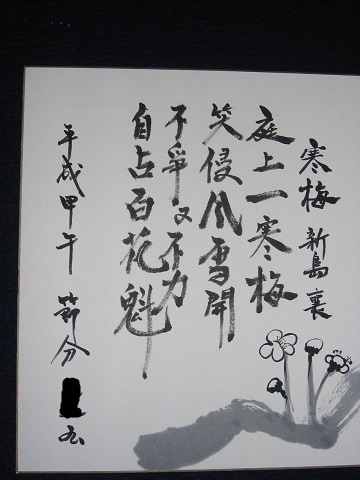 寒梅 新島襄
庭上一寒梅
笑侵風雪開
不争又不力
自占百花魁
平成甲午 節分